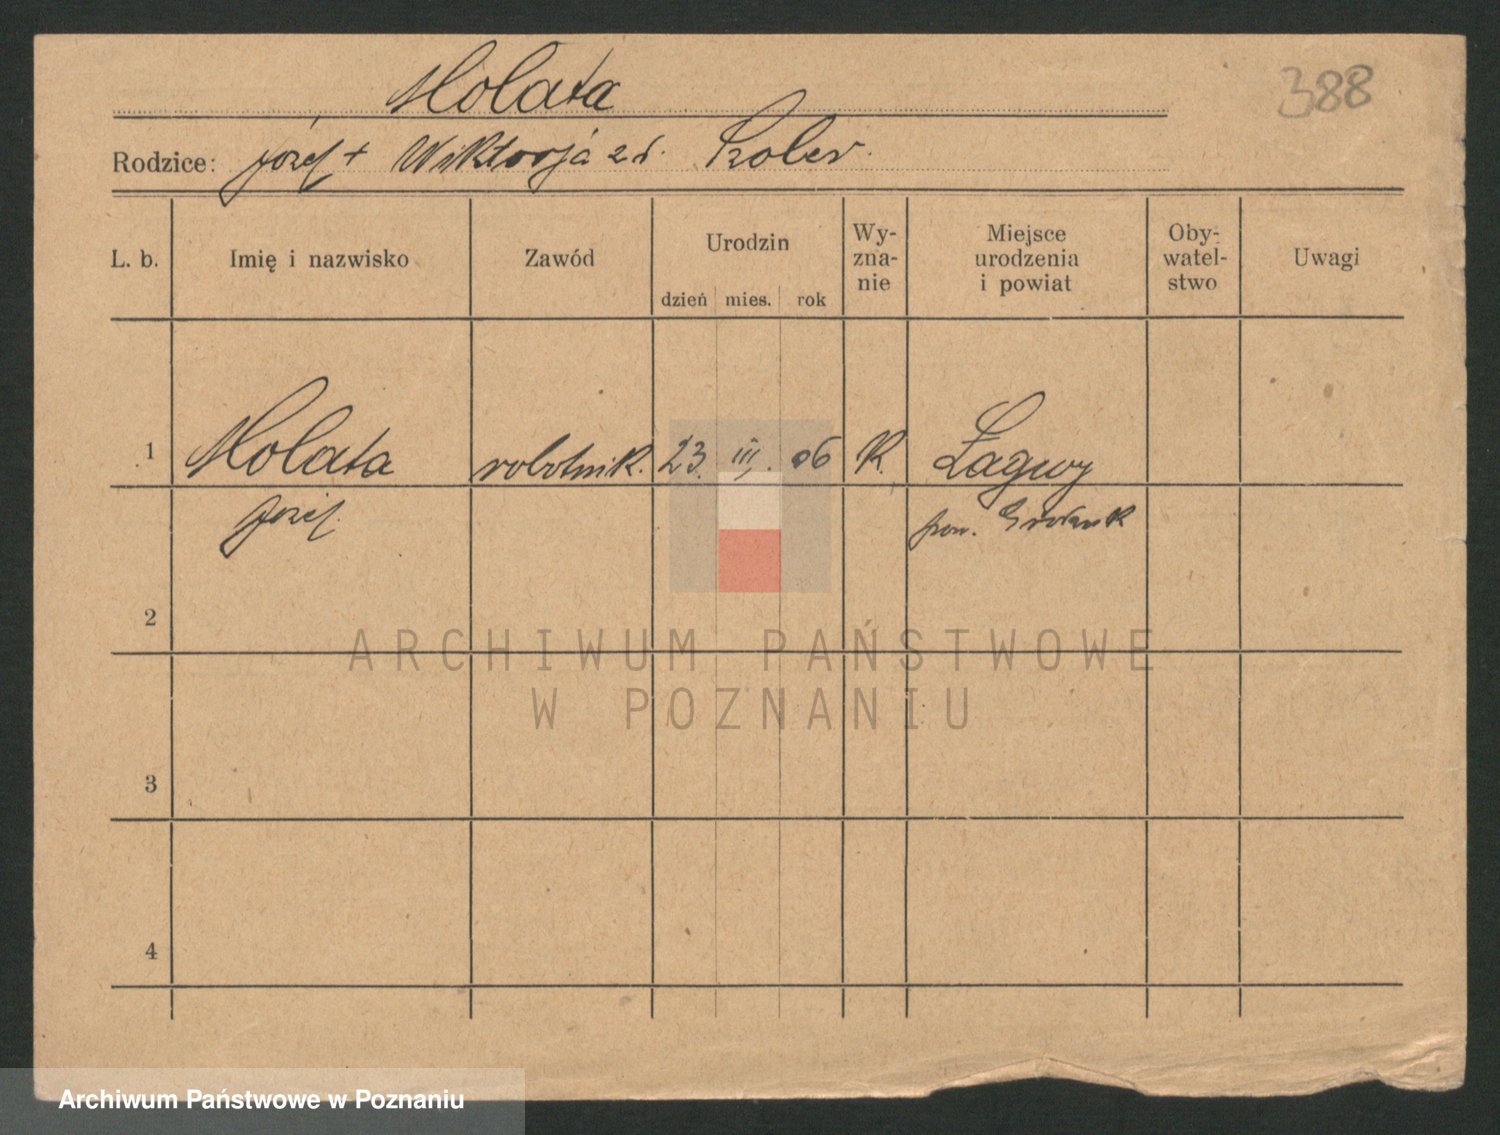 Molata
388
Rodzice: Józef + Wiktorja zd.
L. b.
Imię i nazwisko
Zawód
Urodzin
dzień mies. rok
Wy-
zna-
nie
Miejsce
urodzenia
i powiat
Oby-
watel-
stwo
Uwagi
1 Molata robotnik. 23. III. 06 K. Łagwy
Józef. pow. Grodzisk
2
3
4
ARCHIWUM PAŃSTWOWE
W POZNANIU
Archiwum Państwowe w Poznaniu